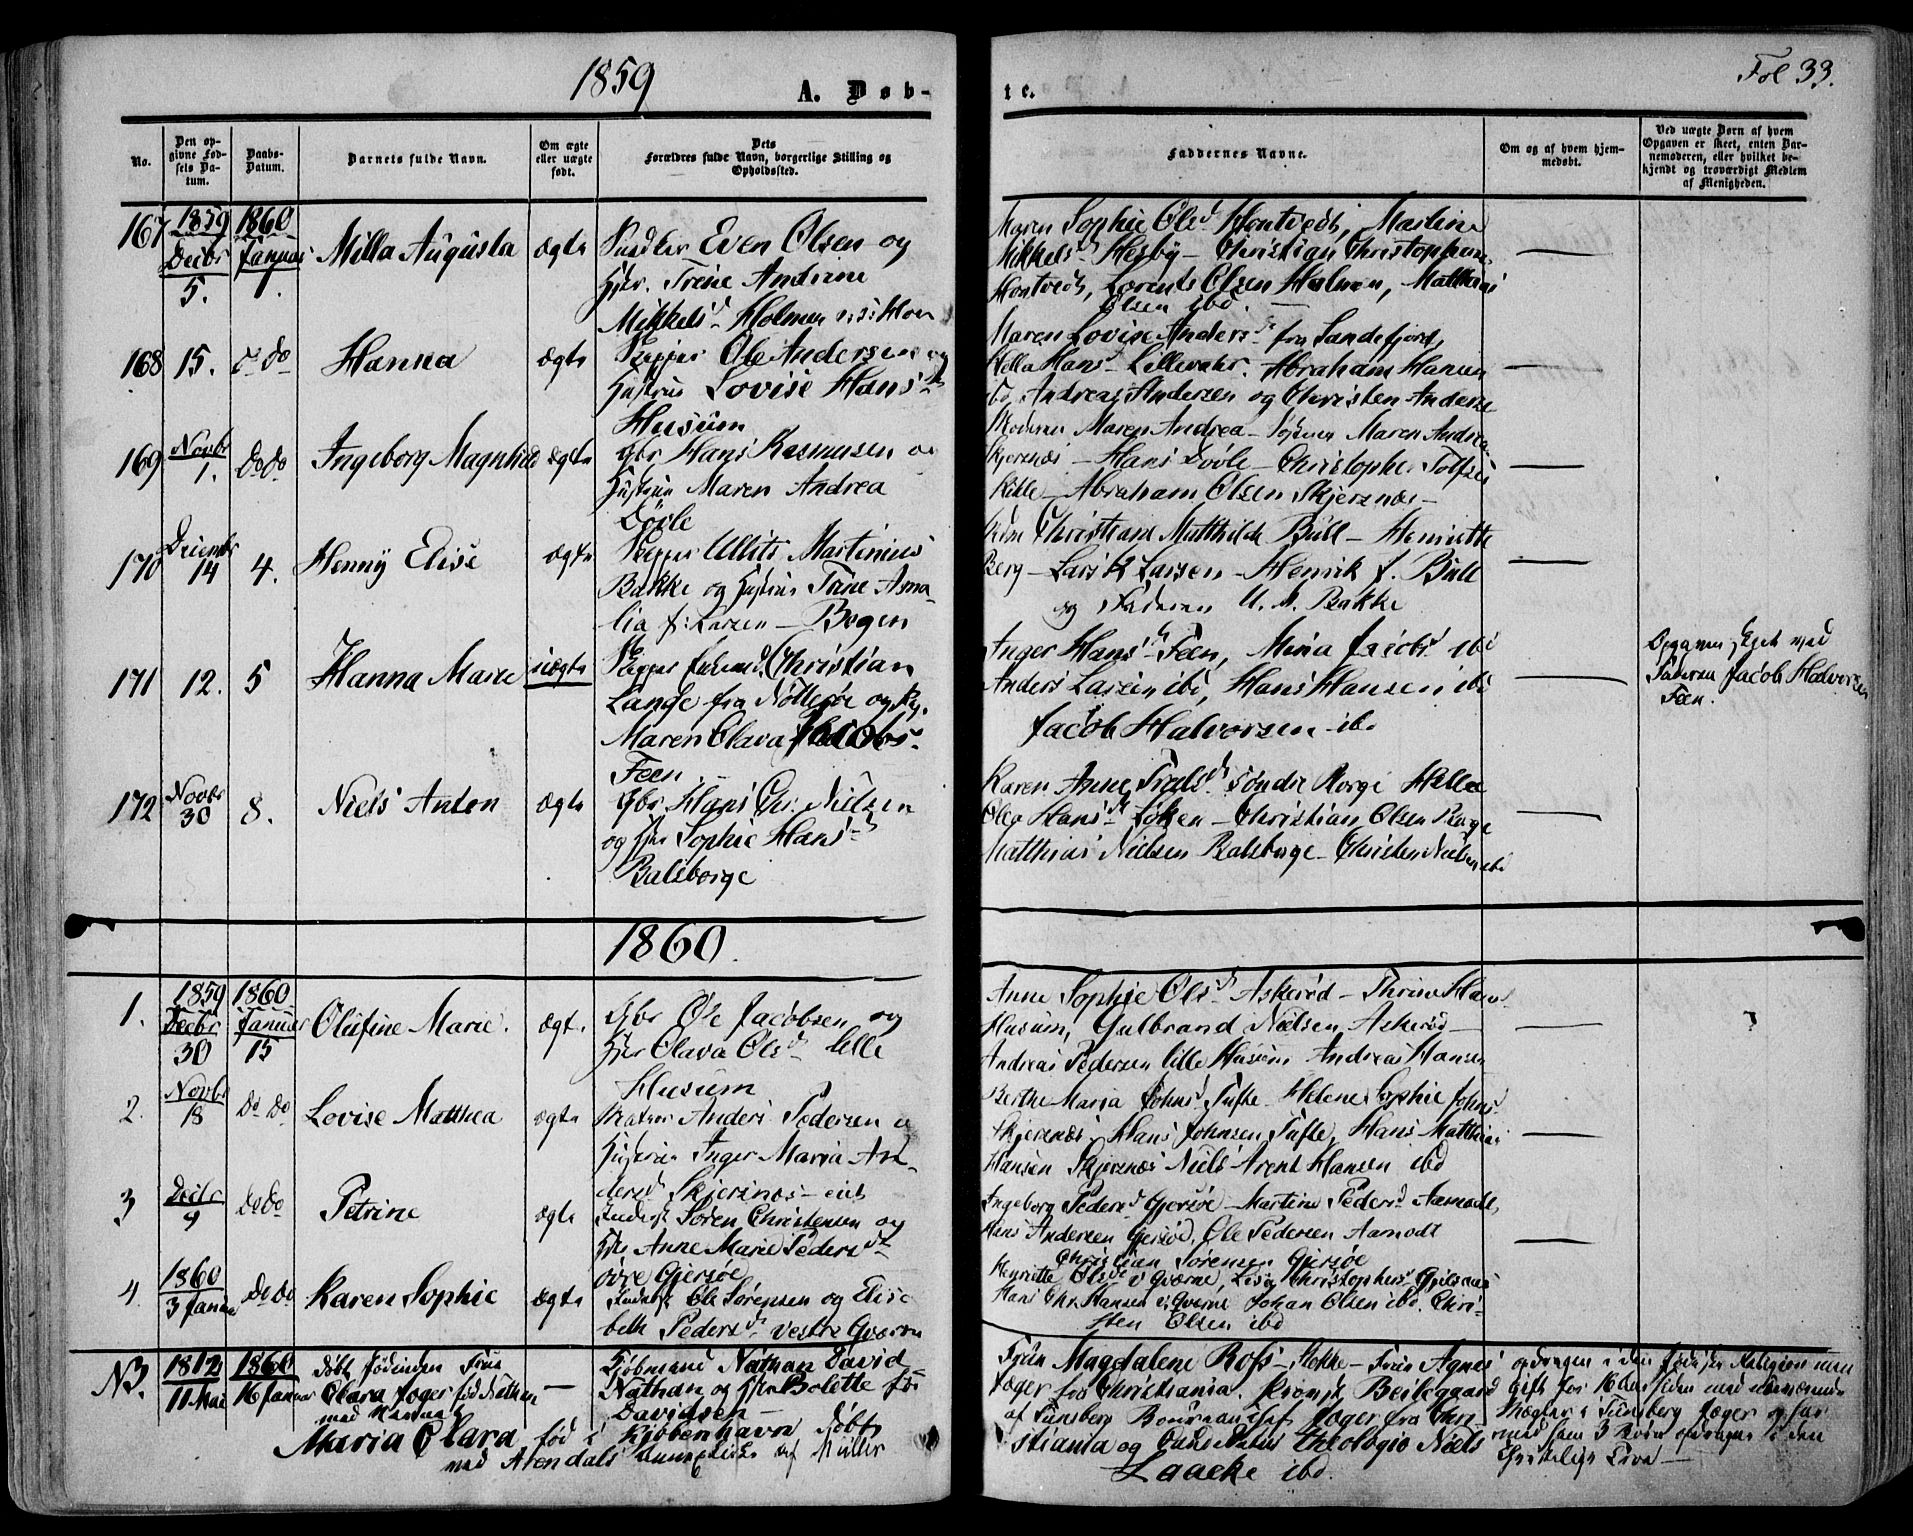 1859
A. Døb-
te.
Fol 33.
No.
Den op-
givne Fød-
sels Da-
tum.
Daabs-
Datum.
Barnets fulde Navn.
Om ægte
eller uægte
født.
Dets
Forældres fulde Navn, borgerlige Stilling og
Opholdssted.
Faddernes Navne.
Om og af hvem hjem-
medøbt.
Ved uægte Børn af hvem
Opgaven er skeet, enten Bar-
nemoderen, eller hvilket be-
kjendt og troværdigt Medlem
af Menigheden.
167
1859
Decbr
5.
1860
Januar
1.
Milla Augusta
ægte
Even Olsen og
Trine Andrine
Mikkelsd Holmen
Maren Sophie Olsd Hontvedt, Martine
Mikkelsd Hesby - Christian Christophersen
Hontvedt, Lorents Olsen Holmen, Matthias
Olsen ibd.
168
15.
do do
Hanna
ægte
Skipper Ole Andersen og
Hustrue Lovise Hansd
Husum
Maren Lovise Andersd fra Sandefjord,
Hella Hansd Lillevahr. Abraham Hansen
ibd, Andreas Andersen og Christen Andersen
169
Novbr
1.
do do
Ingeborg Magnhild
ægte
Gbr Hans Rasmusen og
Hustrue Maren Andrea
Døvle
Moderen Maren Andrea - Maren Andrea
Skjerznæs - Hans Døvle - Christopher Tolfsen
Kille - Abraham Olsen Skjerznæs -
170
Decembr
14
4.
Henny Elise
ægte
Skipper Ullits Martinius
Bakke og Hustrue Trine Ama-
lia f: Larsen - Bogen
Christiane Matthilde Bull - Henriette
Berg - Lars K Larsen - Henrik J. Bull
og Faderen U. M. Bakke
171
12.
5
Hanna Marie
uægte
Skipper Christian
Lange fra Nøtterøe og Pig.
Maren Olava Jacobs-
Feen
Inger Hansd Feen, Mina Jacobsd ibd
Anders Larsen ibd, Hans Hansen ibd
Jacob Halvorsen ibd
Opgaven skeet ved
Faderen Jacob Halvorsen
Feen.
172
Novbr
30
8.
Niels Anton
ægte
Gbr Hans Chr. Nielsen
og Hu Sophie Hansd
Balsborge
Karen Anne Trulsd søndre Borge Hella
Olea Hansd Føken - Christian Olsen Borge
Matthias Nielsen Balsborge - Christen Nielsen ibd
1860.
1.
1859
Decbr
30
1860
Januar
15
Olufine Marie.
ægte
Gbr Ole Jacobsen og
Hu Olava Olsd lille
Husum
Anne Sophie Olsd Askerød - Thrine Hans
Husum, Gulbrand Nielsen Askerød -
Andreas Pedersen lille Husum Andreas Hansen
2.
Novbr
18
do do
Lovise Matthea
ægte
Matros Anders Pedersen og
Hustrue Inger Maria An-
dersd Skjerznæs-eiet
Berthe Maria Johnsd Tufte. Helene Sophie Johns
Skjerznæs. Hans Johnsen Tufte, Hans Matthias
Hansen Skjerznæs Niels Arent Hansen ibd
3
Decbr
9
do do
Petrine
ægte
Inderst Søren Christensen og
Hu Anne Marie Pedersd
øvre Gjersøe
Ingeborg Pedersd Gjersøe - Martine Pedersd Aamodt,
Hans Andersen Gjersød, Ole Pedersen Aamodt
Christian Sørensen Gjersøe
4
1860
3 Januar
do do
Karen Sophie
ægte
Inderst Ole Sørensen og Elisa-
beth Pedersd vestre Gværne
Henriette Olsd v Gværne, Lisa Christophersd Gjelsaas
Hans Chr. Hansen v. Gværne Johan Olsen ibd. Chri-
sten Olsen ibd
N3.
1812
11 Mai
1860
16 Januar
Døbt Jødinden Frue
Clara Jæger fød Nathan
med Navnet
Maria Clara
Kjøbmand Nathan David
Nathan og Hu Bolette fød
Davidsen -
fød i Kjøbenhavn Døbt
med Arendals af Müller
Fruen Magdalene Ross - Stokke - Frue Agnes
Jæger fra Christiania. Beilegaard
af Tunsberg Jæger fra Chri-
stiania og Candidatus theologiæ Niels
Laache ibd.
opdragen i den jødiske Religion men
gift for 16 Aar siden med nuværende
Vægter i Tunsberg Jæger og har
med ham 3 Børn opdragne i den
christelige Troe -